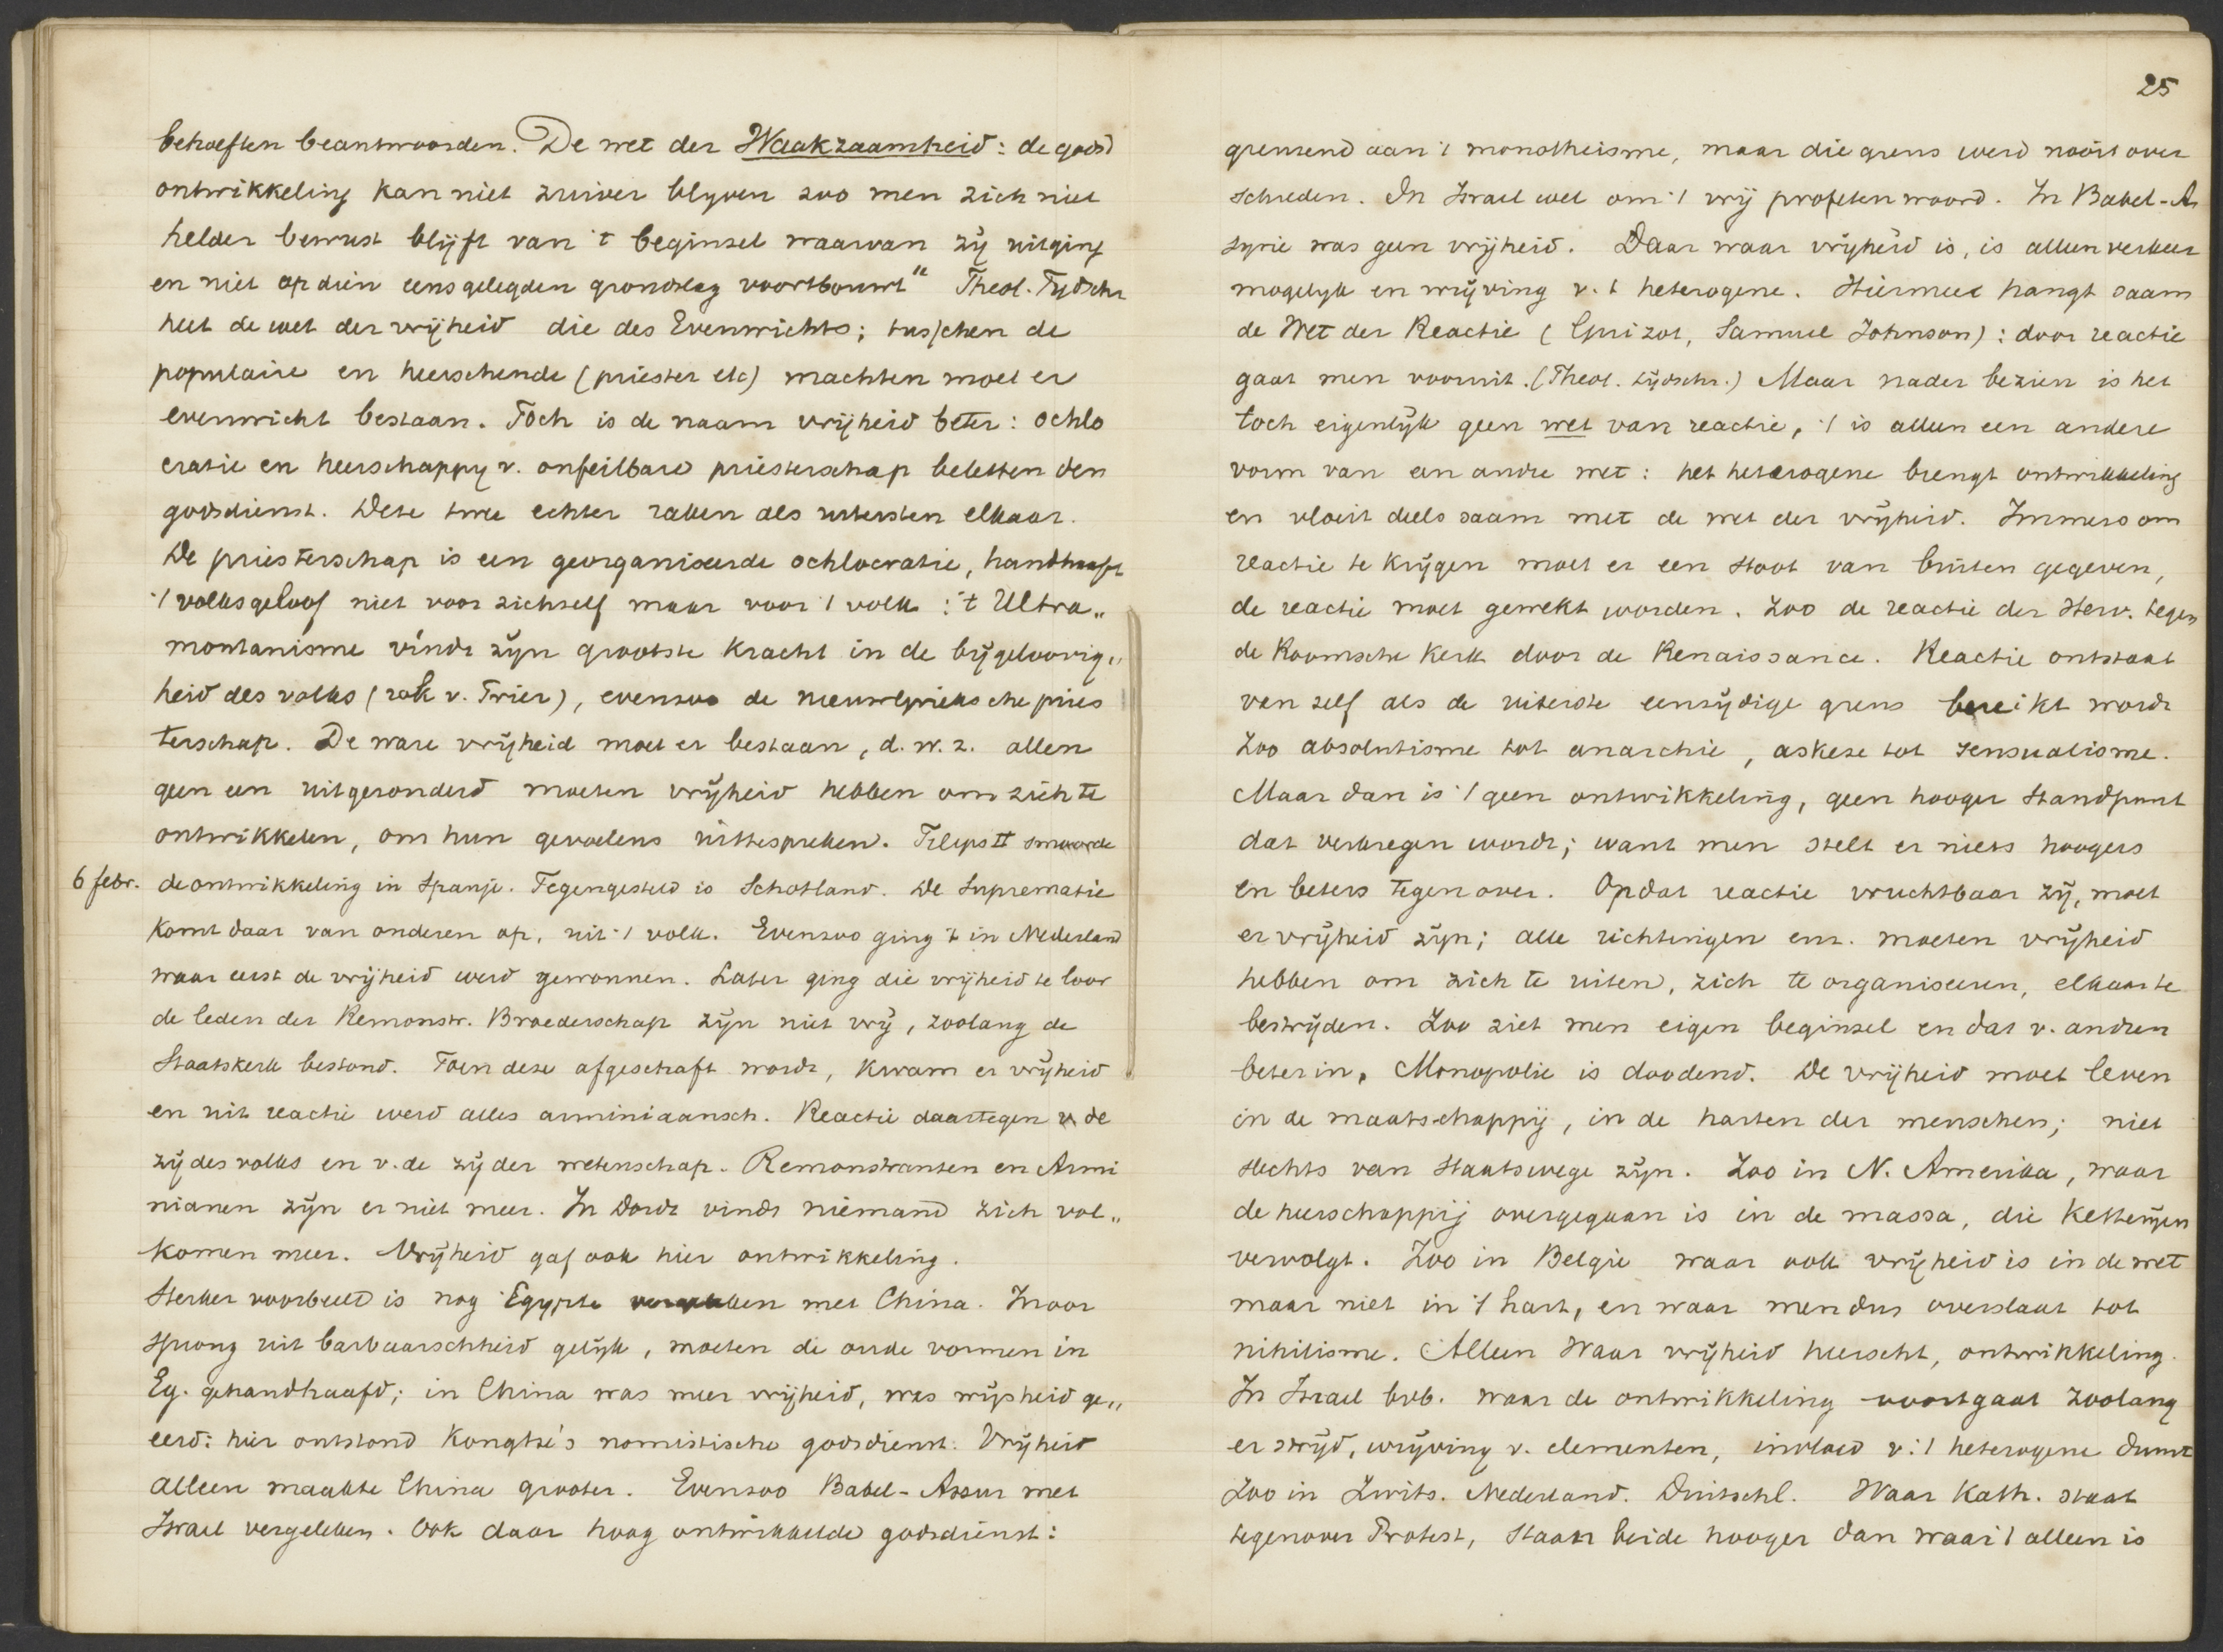 behoeften beantwoorden. De wet der Waakzaamheid: de godsd
ontwikkeling kan niet zuiver blyven zoo men zich niet
helder bewust blijft van 't beginsel waarvan zy uitging
en niet op dien eens gelegden grondslag voortbouwt" Theol. Tydschr
heet de wet der vrijheid die des Evenwichts; tusschen de
populaire en heerschende (priester etc) machten moet er
evenwicht bestaan. Toch is de naam vrijheid beter: ochlo
cratie en heerschappy v. onfeilbare priesterschap beletten den
godsdienst. Deze twee echter raken als uitersten elkaar.
De priesterschap is een georganiseerde ochlocratie, handhaaft
't volksgeloof niet voor zichzelf maar voor 't volk: 't Ultra„
montanisme vindt zyn grootste kracht in de bijgeloovig„
heid des volks (rok v. Trier), evenzoo de nieuwGrieksche pries
terschap. De ware vrijheid moet er bestaan, d.w.z. allen
geen een uitgezonderd moeten vrijheid hebben om zich te
ontwikkelen, om hun gevoelens uittespreken. Filips II smoorde
6 febr. de ontwikkeling in Spanje. Tegengesteld is Schotland. De Suprematie
komt daar van onderen op, uit 't volk. Evenzoo ging 't in Nederland
waar eerst de vrijheid werd gewonnen. Later ging die vrijheid te loor
de leden der Remonstr. Broederschap zyn niet vrij, zoolang de
Staatskerk bestond. Toen deze afgeschaft wordt, kwam er vrijheid
en uit reactie werd alles arminiaansch. Reactie daartegen v. de
zij des volks en v. de zij der wetenschap. Remonstranten en Armi
nianen zyn er niet meer. In Dordt vindt niemand zich vol„
komen meer. Vrijheid gaf ook hier ontwikkeling.
Sterker voorbeeld is nog Egypte vergeleken met China. In oor
sprong uit barbaarschheid gelijk, moeten de oude vormen in
Eg. gehandhaafd; in China was meer vrijheid, was wijsheid ge„
eerd: hier ontstond Kongtse's nomistische godsdienst. Vrijheid
alleen maakte China grooter. Evenzoo Babel-Assur met
Israel vergeleken. Ook daar hoog ontwikkelde godsdienst:
25
grenzend aan 't monotheisme, maar die grens werd nooit over
schreden. In Israel wel om 't vrij profeten woord. In Babel-As
syrie was geen vrijheid. Daar waar vrijheid is, is alleen verkeer
mogelyk en wrijving v. 't heterogene. Hiermee hangt saam
de Wet der Reactie (Guizot, Samuel Johnson): door reactie
gaat men vooruit. (Theol. tijdschr.) Maar nader bezien is het
toch eigenlijk geen wet van reactie, 't is alleen een andere
vorm van een andre wet: het heterogene brengt ontwikkeling
en vloeit deels saam met de wet der vrijheid. Immers om
reactie te krijgen moet er een stoot van buiten gegeven,
de reactie moet gewekt worden. Zoo de reactie der Herv. tegen
de Roomsche Kerk door de Renaissance. Reactie ontstaat
van zelf als de uiterste eenzijdige grens bereikt wordt
Zoo absolutisme tot anarchie, askese tot sensualisme.
Maar dan is 't geen ontwikkeling, geen hooger standpunt
dat verkregen wordt; want men stelt er niets hoogers
en beters tegenover. Opdat reactie vruchtbaar zij, moet
er vrijheid zijn; alle richtingen enz. moeten vrijheid
hebben om zich te uiten, zich te organiseeren, elkaar te
bestrijden. Zoo ziet men eigen beginsel en dat v. andren
beter in. Monopolie is doodend. De vrijheid moet leven
in de maatschappij, in de harten der menschen; niet
slechts van Staatswege zijn. Zoo in N. Amerika, waar
de heerschappij overgegaan is in de massa, die ketterijen
vervolgt. Zoo in Belgie waar ook vrijheid is in de wet
maar niet in 't hart, en waar men dus overslaat tot
nihilisme. Alleen waar vrijheid heerscht, ontwikkeling.
In Israel bvb. waar de ontwikkeling voortgaat zoolang
er strijd, wrijving v. elementen, invloed v. 't heterogene duurt
Zoo in Zwits. Nederland. Duitschl. Waar Kath. staat
tegenover Protest, staan beide hooger dan waar 't alleen is